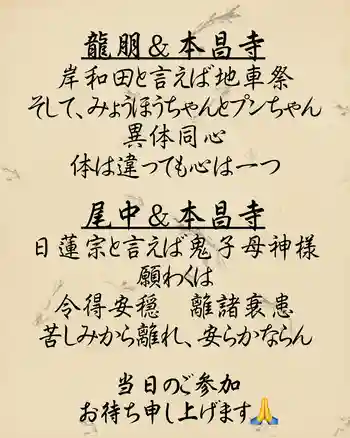 龍朋＆本昌寺
岸和田と言えば地車祭
そして、みょうほうちゃんとプンちゃん
異体同心
体は違っても心は一つ
尾中＆本昌寺
日蓮宗と言えば鬼子母神様
願わくは
令得安穏　離諸衰患
苦しみから離れ、安らかならん
当日のご参加
お待ち申し上げます🙏